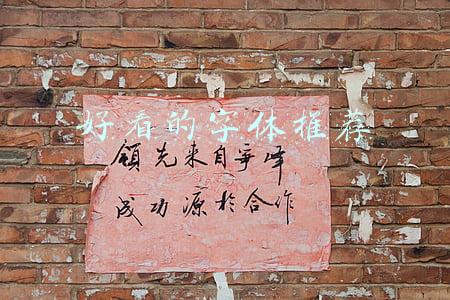 好看的字体推荐
领先来自争峰
成功源於合作